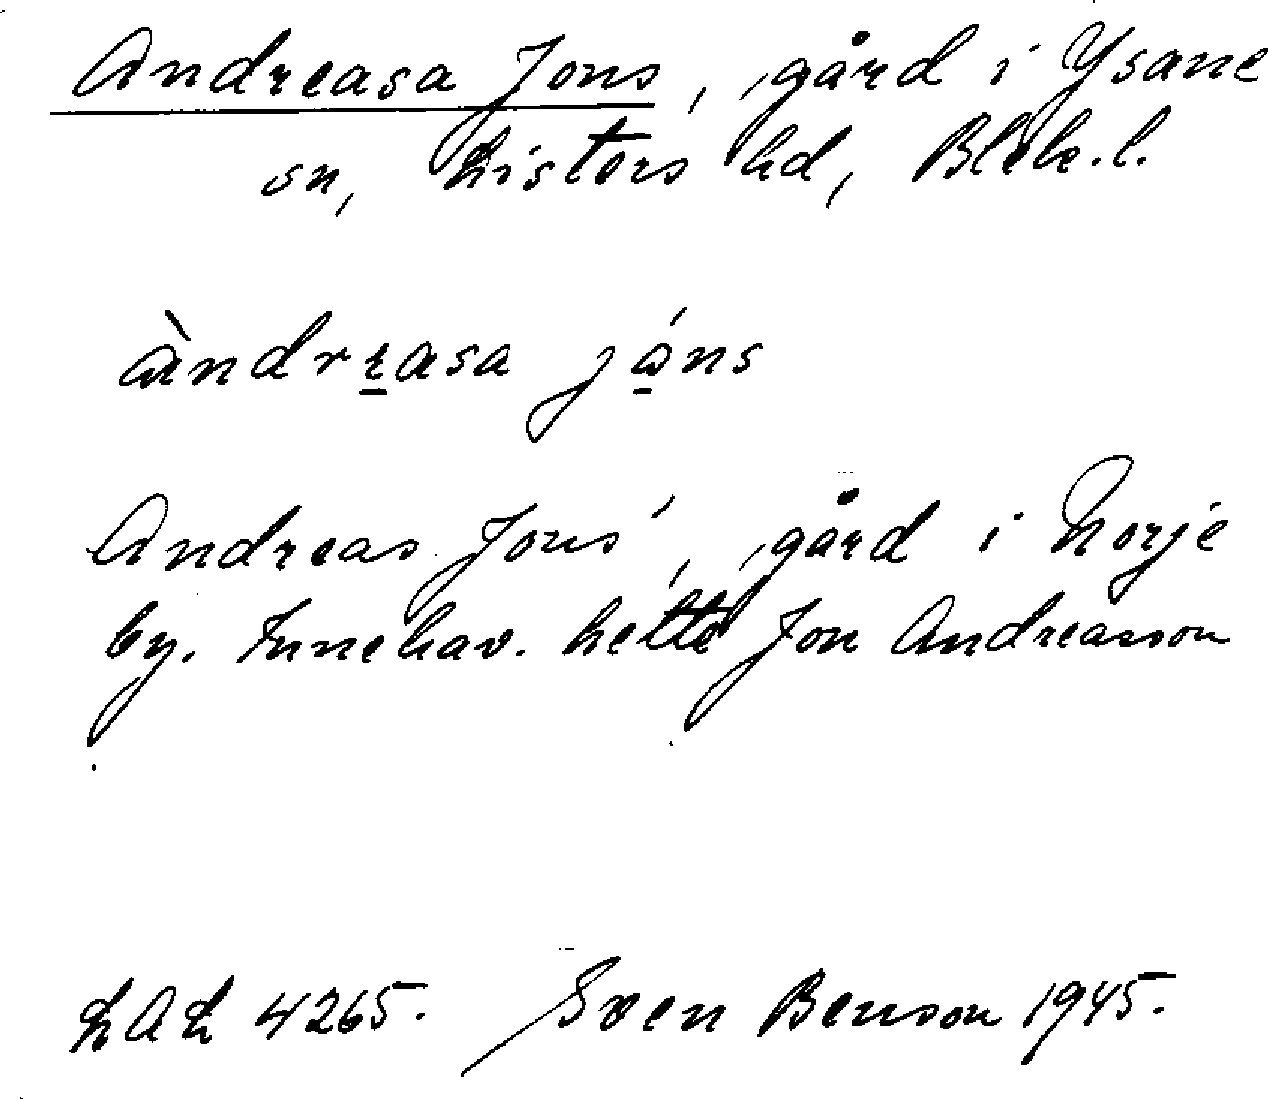 Andreasa Jons, gård i Ysane
sn, Listers hd, Blek.l.
àndrɪasa jóns
Andreas Jons', gård i Norje
by. Innehav. hette Jon Andreasson
LAL 4265. Sven Benson 1945.